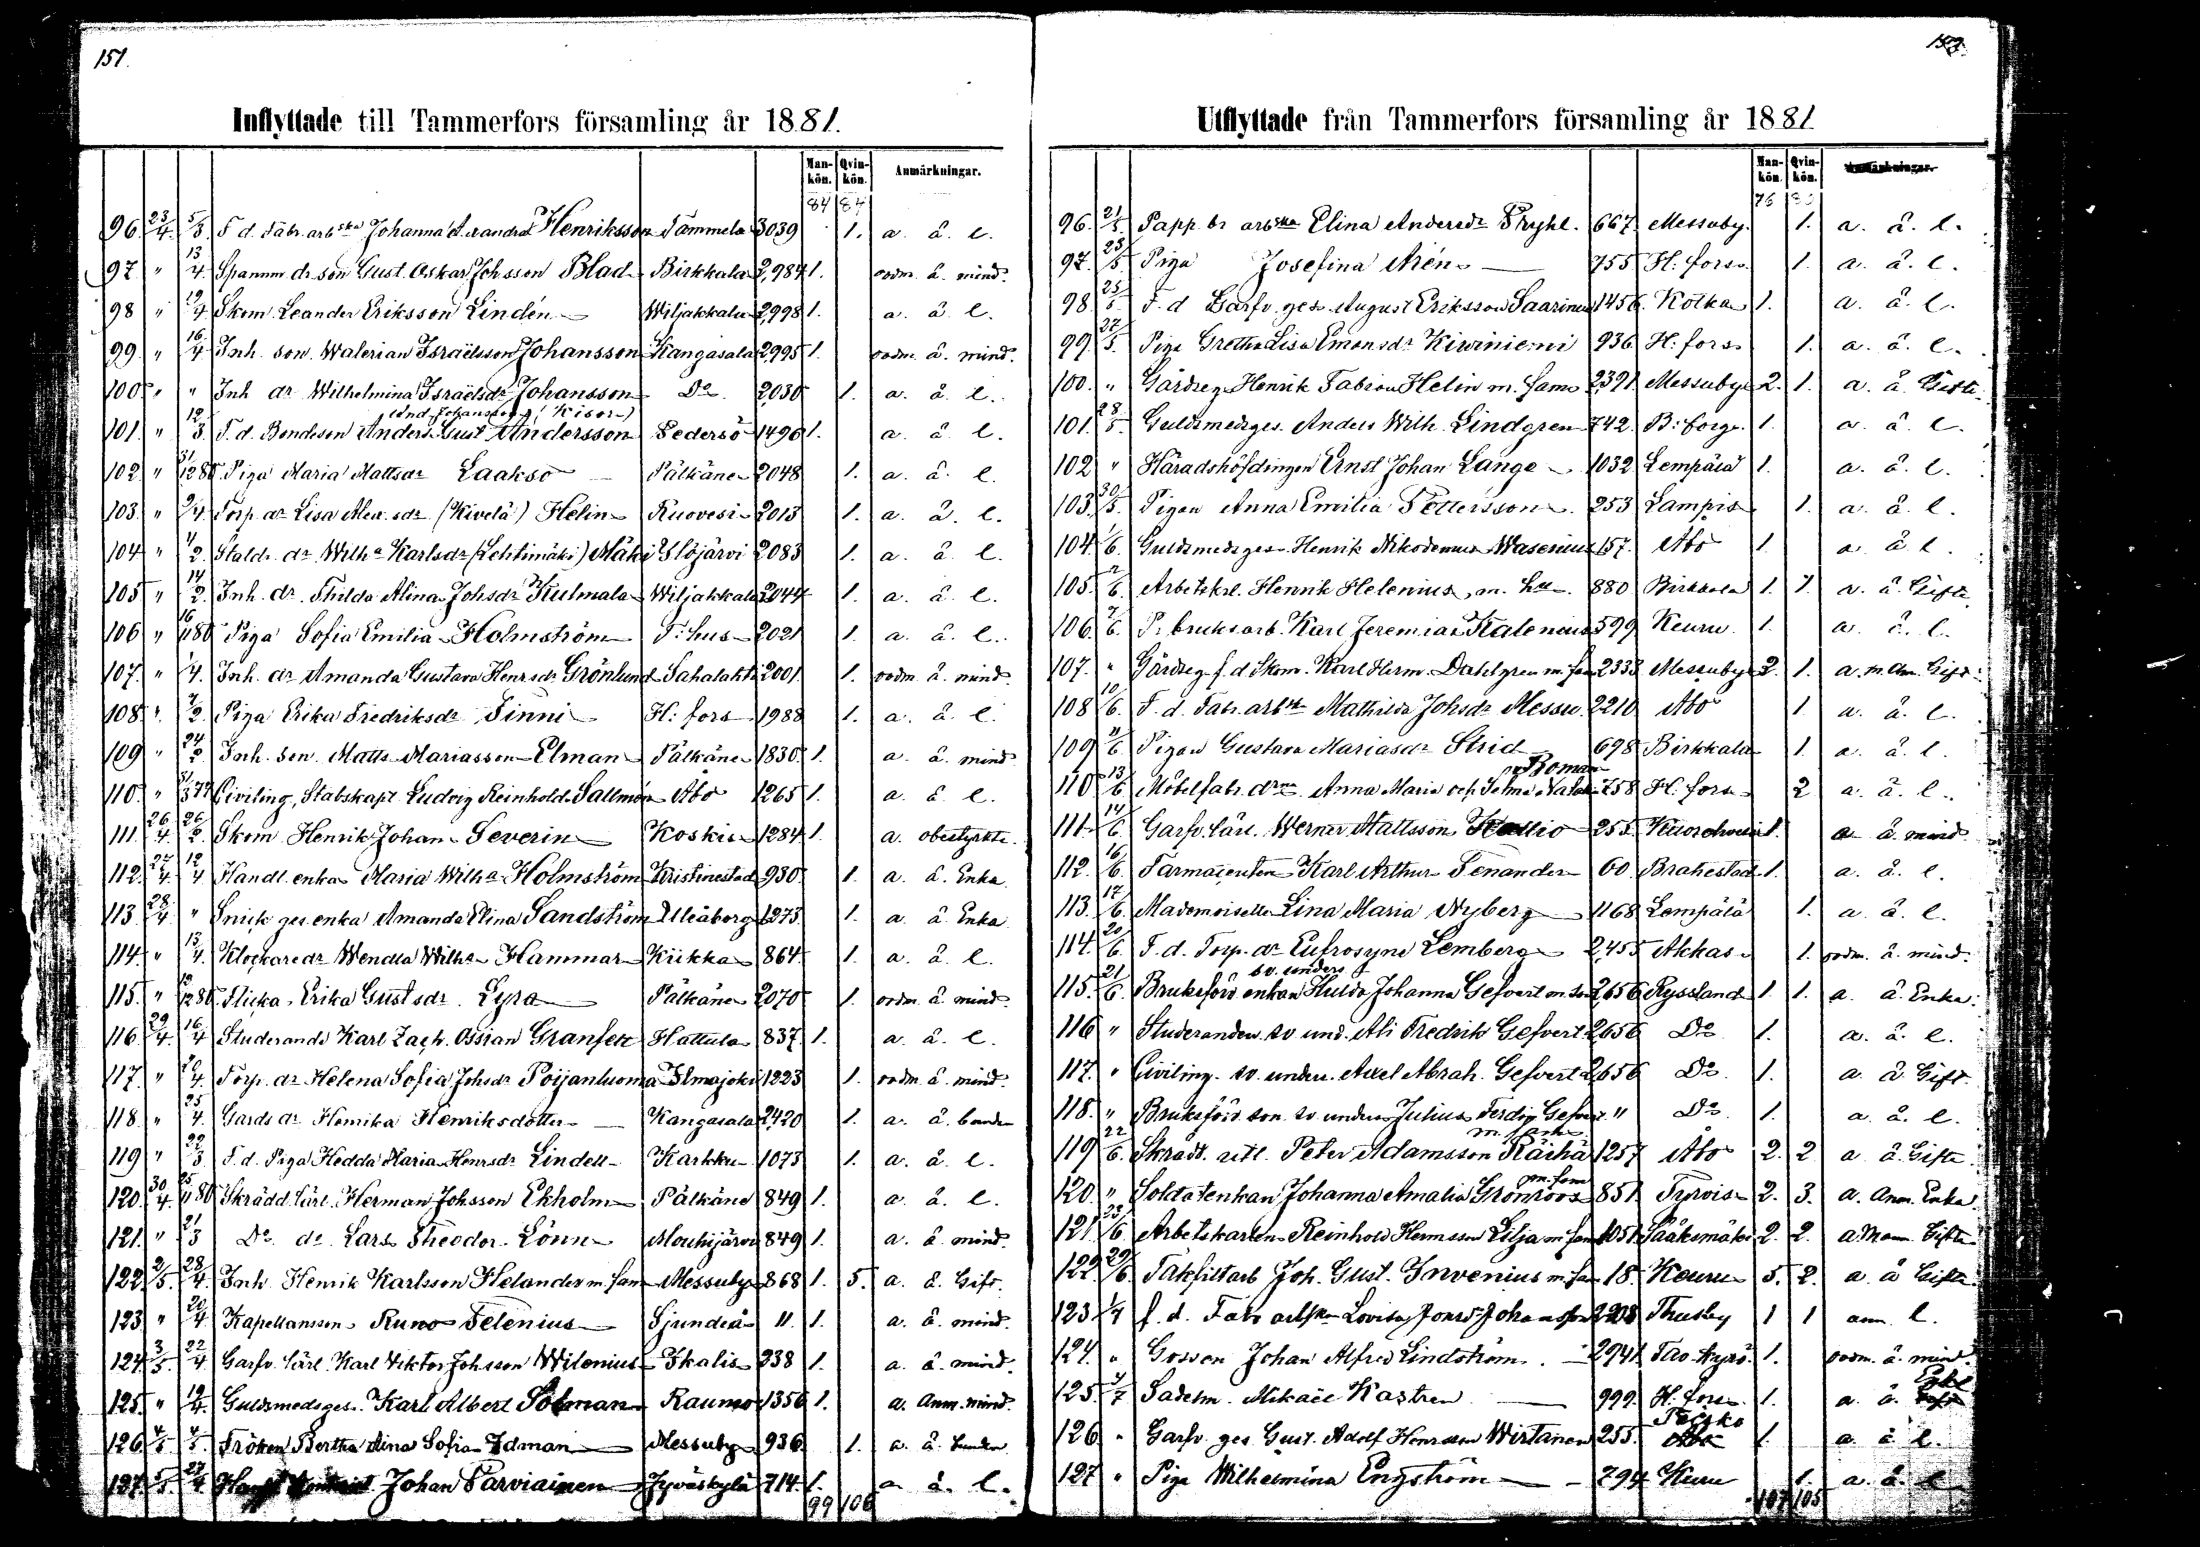 151.
Inflyttade till Tammerfors församling år 1881.
Man-kön. Qvin-kön. Anmärkningar.
84 84
96. 23/4. 5/3. F. d. Fabr. arbska Johanna Alexandra Henriksson Tammela 3039 1. a. ä. l.
97 " 13/4. Spanm dr son Gust. Oskar Johsson Blad Birkkala 2,984 1. oodm. ä. mind.
98 " 19/4 Skom. Leander Eriksson Lindén Wiljakkala 2,998 1. a. ä. l.
99. " 16/4 Inh. son. Walerian Israëlsson Johansson Kangasala 2,995 1. oodm. ä. mind.
100. " " Inh dr Wilhelmina Israëlsdr Johansson Do 2,030 1. a. ä. l.
101. " 12/3. F. d. Bondeson Anders Gust Andersson Pedersö 1496 1. a. ä. l.
102. " 31/12 80. Piga Maria Mattsdr Laakso Pälkäne 2048 1. a. ä. l.
103. " 2/4. Torp. dr Lisa Alex. sdr (Kivelä) Helin Ruovesi 2013 1. a. ä. l.
104 " 4/2. Staldr. dr Wilha Karlsdr (Lehtimäki) Mäki Ylöjärvi 2083 1. a. ä. l.
105 " 14/2. Inh. dr. Thilda Alina Johsdr Kulmala Wiljakkala 2044 1. a. ä. l.
106 " 16/11 80 Piga Sofia Emilia Holmström T:hus 2021 1. a. ä. l.
107. " 1/4. Inh. dr Amanda Gustava Henrsdr Grönlund Sahalahti 2001. 1. oodm. ä. mind.
108. " 7/2. Piga Erika Fredriksdr Finni H:fors 1988 1. a. ä. l.
109 " 24/2 Inh. son. Matts Mariasson Elman Pälkäne 1830. 1. a. ä. mind.
110. " 31/3 77 Civiling, Stabskapt. Ludvig Reinhold Sallmén Åbo 1265 1. a. ä. l.
111. 26/4 26/2 Skom Henrik Johan Severin Koskis 1284 1. a. obestyrkte.
112. 27/4. 12/4 Handl. enka Maria Wilha Holmström Kristinestad 930. 1. a. ä. Enka
113. 28/4. " Snick ges. enka Amanda Elina Sandström Uleåborg 1273 1. a. ä. Enka
114. " 13/4. Klockaredr Wendla Wilha Hammar Kiikka 864. 1. a. ä. l.
115. " 12/12 80 Flicka Erika Gustsdr. Lyra Pälkäne 2070 1. oodm. ä. mind.
116 29/4. 16/4 Studerande Karl Zach. Ossian Granfelt Hattula 837. 1. a. ä. l.
117. " 20/4. Torp. dr Helena Sofia Johsdr Poijanluoma Ilmajoki 1223 1. oodm. ä. mind.
118. " 25/4. Gards dr Henrika Henriksdotter Kangasala 2,420 1. a. ä. bunden
119 " 22/3 F. d. Piga Hedda Maria Henrsdr Lindell Karkku 1073 1. a. ä. l.
120. 30/4. 25/11 80 Skrädd. lärl. Herman Johsson Ekholm Pälkäne 849 1. a. ä. l.
121. " 21/3 Do do Lars Theodor Lönn Mouhijärvi 849 1. a. ä. mind.
122. 2/5. 28/4. Inh. Henrik Karlsson Helander m. fam Messuby 868 1. 5. a. ä. Gift.
123 " 20/4 Kapellanssen Runo Telenius Sjundeå 11. 1. a. ä. mind.
124. 3/5. 22/4. Garfv. lärl. Karl Viktor Johsson Wilenius Ikalis 238 1. a. ä. mind.
125. " 19/4. Guldsmedsges. Karl Albert Solman Raumo 1356 1. a. Anm. mind.
126. 4/5 4/5. Fröken Bertha Alina Sofia Idman Messuby 936. 1. a. ä. bunden
127. 5/5. 27/4. Johan Parviainen Jyväskylä 714. 1. a. ä. l.
99 106
Utflyttade från Tammerfors församling år 1881
Man-kön. Qvin-kön. Anmärkningar.
96. 21/5. Papp. br arbska Elina Andersdr Stryhl. 667. Messuby. 1. a. ä. l.
97. 23/5. Piga Josefina Alén 755 H:fors 1. a. ä. l.
98. 25/5 F. d Garfv. ges. August Eriksson Saarinen 1456. Kotka 1. a. ä. l.
99. 27/5. Piga Gretha Lisa Emansdr Kiviniemi 936 H:fors 1. a. ä. l.
100. " Gårdseg Henrik Fabian Helin m. fam 2,391 Messuby 2. 1. a. ä. Gifte.
101. 28/5. Guldsmedges. Anders Wilh. Lindgren 742. B:borg. 1. a. ä. l.
102 " Häradshöfdingen Ernst Johan Lange 1032 Lempälä 1. a. ä. l.
103. 30/5. Pigan Anna Emilia Pettersson 253 Lampis 1. a. ä. l.
104. 1/6. Guldsmedsges. Henrik Nikodemus Wasenius 157. Åbo 1. a. ä. l.
105. 2/6. Arbetskrl. Henrik Helenius, m. hu 880 Birkkala 1. 1. a. ä. Gifte.
106. 7/6. P. bruksarb. Karl Jeremias Kalenius 599 Keuru 1. a. ä. l.
107. " Gårdseg. f. d Skom. Karl Herm. Dahlgren m. fam 2333 Messuby 2. 1. a. m. Anm. Gift.
108 10/6. F. d. Fabr. arbsk Mathilda Johsdr Messu 2210 Åbo 1 a. ä. l.
109 11/6 Pigan Gustava Mariasdr Strid 698 Birkkala 1. a. ä. l.
Boman
110 13/6 Möbelfabr. drne Anna Maria och Selma Natal 758 H:fors 2 a. ä. l.
111. 14/6 Garfv. lärl. Werner Mattsson Kallio 255. Kuorehvesi 1. a ä. mind.
112. 16/6. Farmaceuten Karl Arthur Fenander 60. Brahestad 1. a. ä. l.
113. 17/6. Mademoiselle Lina Maria Nyberg 1168 Lempälä 1. a. ä. l.
114. 20/6. F. d. Torp. dr Eufrosyne Lemberg 2,455 Akkas 1. oodm. ä. mind.
sv. unders
115. 21/6. Bruksförv enkan Hulda Johanna Gefvert m. son 2656 Ryssland 1. 1. a. ä. Enka.
116 " Studeranden sv und. Ali Fredrik Gefvert 2656 Do 1. a. ä. l.
117. " Civiling. sv. under. Axel Abrah. Gefvert 2,656 Do 1. a ä Gift.
118. " Bruksförv son sv under Julius Ferdin Gefvert " Do 1. a. ä. l.
119 22/6. Skrädt. arbl. Peter Adamsson Räihä 1257 Åbo 2. 2 a ä. Gifte
m. fam
120. " Soldatenkan Johanna Amalia Grönroos 851 Tyrvis 2. 3. a. Anm. Enka.
121 23/6 Arbetskarlen Reinhold Hermsson Lilja m fam 1051 Sääksmäki 2. 2. a. Anm. Gifte
122 29/6 Takfiltarb Joh. Gust. Invenius m. fam 18. Keuru 5. 2. a. ä Gifte.
123 1/7 f. d. Fabr arbska Lovisa Jonsdr Johansson 2908 Thusby 1 1 anm. l.
124. " Gossen Johan Alfred Lindström 2941 Tav. Kyrö 1. oodm. ä. mind.
125. 4/7 Sadelm. Mikaël Kastren 999. H.fors 1. a. ä.
Teisko
126 " Garfv. ges Gust. Adolf Henrsson Wirtanen 255. Åbo 1. a. ä l.
127 " Piga Wilhelmina Engström 794 Kuru 1. a. ä l
107 105